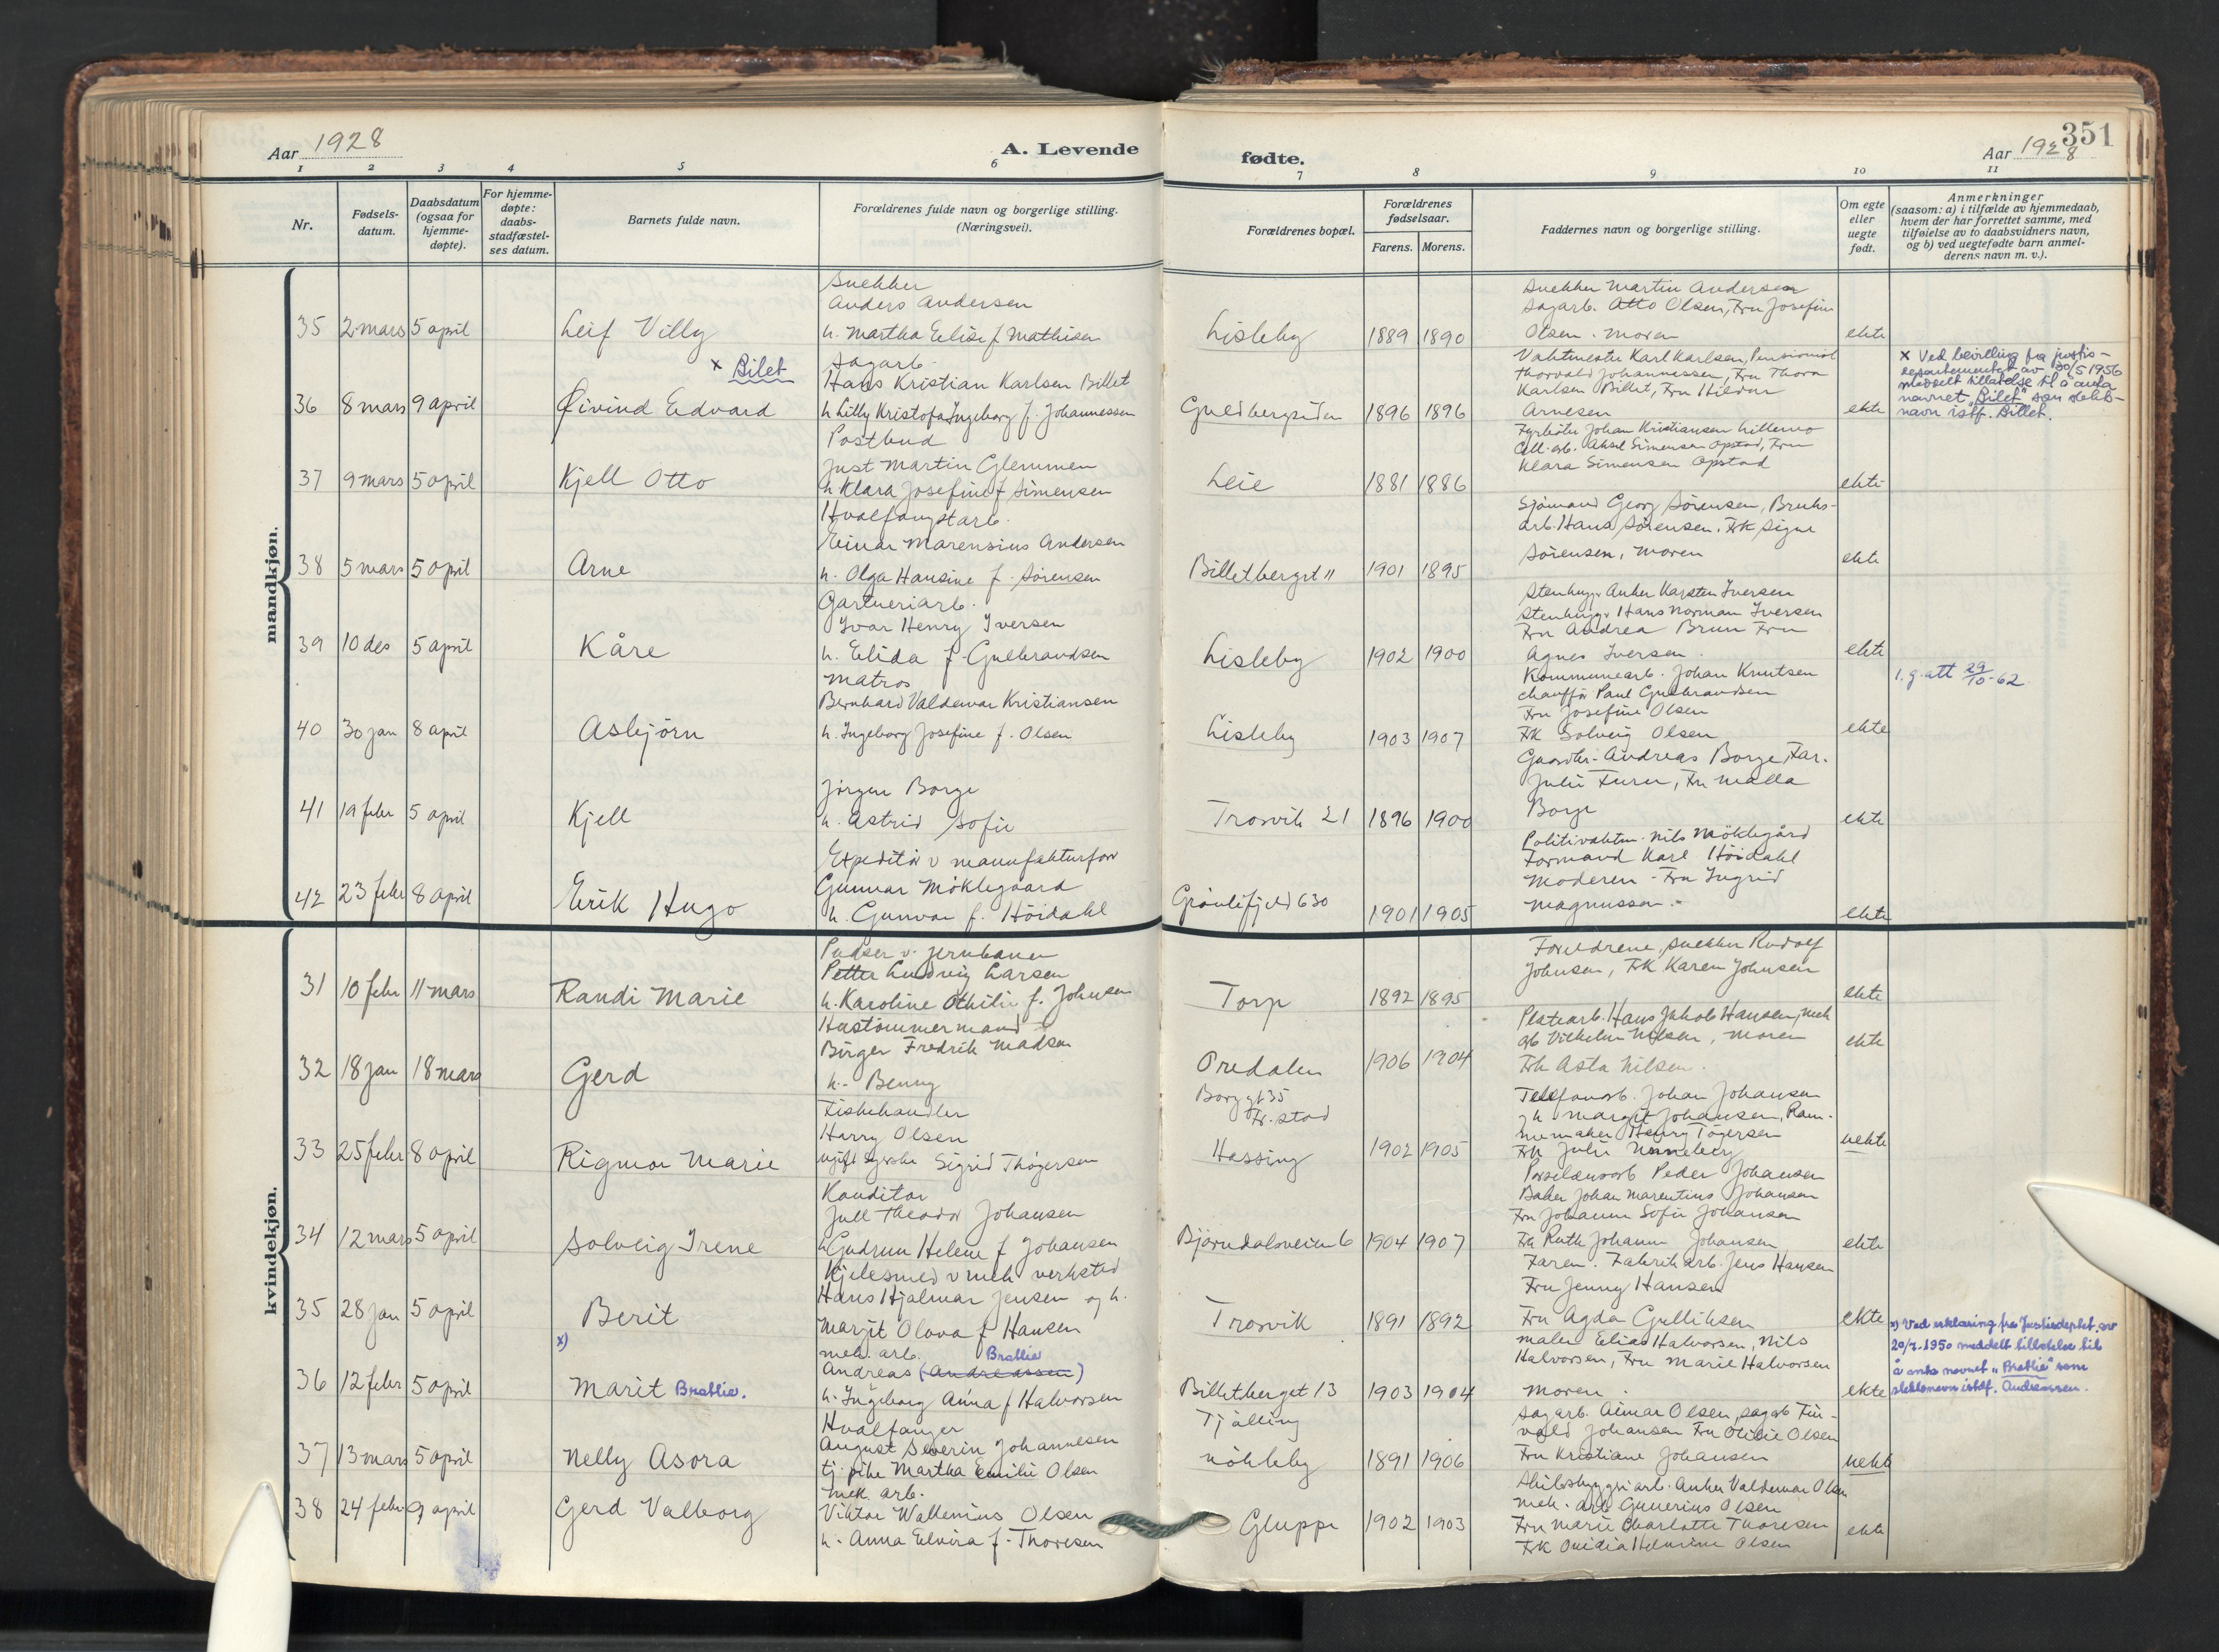 351
Aar 1928
A. Levende
fødte.
Aar 1928
1 2 3 4 5 6 7 8 9 10 11
Nr.
Fødsels-
datum.
Daabsdatum
(ogsaa for
hjemme-
døpte).
For hjemme-
døpte:
daabs-
stadfæstel-
ses datum.
Barnets fulde navn.
Forældrenes fulde navn og borgerlige stilling.
(Næringsvei).
Forældrenes bopæl.
Forældrenes
fødselsaar.
Farens. Morens.
Faddernes navn og borgerlige stilling.
Om egte
eller
uegte
født.
Anmerkninger
(saasom: a) i tilfælde av hjemmedaab,
hvem der har forrettet samme, med
tilføielse av to daabsvidners navn,
og b) ved uegtefødte barn anmel-
derens navn m. v.).
mandkjøn.
35 2 mars 5 april Leif Villy
Snekker
Anders Andersen
h. Martha Elise f Mathisen
Lisleby 1889 1890
Snekker Martin Andersen
Sagarb. Otto Olsen, Fru Josefine
Olsen. Moren
ekte
36 8 mars 9 april Øivind Edvard x Bilet
Sagarb.
Hans Kristian Karlsen Billet
h Lilly Kristofa Ingeborg f. Johannessen
Guldbergsiden 1896 1896
Vaktmester Karl Karlsen, Pensionist
Thorvald Johannessen, Fru Thora
Karlsen Billet, Fru Hildur
Arnesen
ekte
x Ved bevilling fra justis-
departementet av 30/5 1956
meddelt tillatelse til å anta
navnet "Bilet" som slekts-
navn istf. Billet.
37 9 mars 5 april Kjell Otto
Postbud
Just Martin Glemmen
h Klara Josefine f Simensen
Leie 1881 1886
Fyrbøter Johan Kristiansen Lillemo
Cell. arb. Aksel Simensen Opstad, Fru
Klara Simensen Opstad
ekte
38 5 mars 5 april Arne
Hvalfangstarb.
Einar Marensius Andersen
h. Olga Hansine f. Sörensen
Billetberget 11 1901 1895
Sjömand Georg Sörensen, Bruks-
arb. Hans Sörensen. Frk Signe
Sörensen, Moren
ekte
39 10 des 5 april Kåre
Gartneriarb.
Ivar Henry Iversen
h. Elida f. Gulbrandsen
Lisleby 1902 1900
Stenhugg. Anker Karsten Iversen
Stenhugg. Hans Norman Iversen
Fru Andrea Brun Fru
Agnes Iversen.
ekte
1. g. att 29/10-62
40 30 jan 8 april Asbjörn
Matros
Bernhard Valdemar Kristiansen
h. Ingeborg Josefine f. Olsen
Lisleby 1903 1907
Kommunearb. Johan Knutsen
chauffør Paul Gulbrandsen
Fru Josefine Olsen
Frk Solveig Olsen
ekte
41 19 febr 5 april Kjell
Jörgen Borge
h. Astrid Sofie
Trosvik 21 1896 1900
Andreas Borge,
Julie Furu, Fru Malla
Borge
ekte
42 23 febr 8 april Erik Hugo
Expeditör v manufakturforr
Gunnar Möklegaard
h. Gunvor f. Höidahl
Grönlifjeld 630 1901 1905
Politivaktm. Nils Möklegård
Formand Karl Höidahl
Moderen - Fru Ingrid
Magnussen.-
ekte
kvindekjøn.
31 10 febr 11 mars Randi Marie
Pudser v. jernbanen
Petter Ludvig Larsen
h. Karoline Othilie f. Johnsen
Torp 1892 1895
Foreldrene, Snekker Rudolf
Johnsen, Frk Karen Johnsen
ekte
32 18 jan 18 mars Gerd
Hustömmermand
Birger Fredrik Madsen
h.- Benny
Oredalen 1906 1904
Platearb. Hans Jakob Hansen, mek
arb Vilhelm Nilsen, Moren
Frk Asta Nilsen.
ekte
33 25 febr 8 april Rigmor Marie
Fiskehandler
Harry Olsen
ugift syerske Sigrid Thögersen
Borggt 35
Fr. stad
Hassing 1902 1905
Telefonarb. Johan Johansen
og h Margit Johansen, Ram-
memaker Henry Tögersen
Frk Julie Unneberg
uekte
34 12 mars 5 april Solveig Irene
Konditor
Jull Theodor Johansen
h Gudrun Helene f Johansen
Björndalsveien 6 1904 1907
Porselensarb Peder Johansen
Baker Johan Marentius Johansen
Fru Johanne Sofie Johansen
Fru Ruth Johanne Johansen
ekte
35 28 jan 5 april Berit
Kjelesmed v mek verksted
Hans Hjalmar Jensen og h.
Marjit Olava f Hansen
Trosvik 1891 1892
Faren. Fabrikarb. Jens Hansen
Fru Jenny Hansen
Fru Agda Gulliksen
ekte
36 12 febr 5 april x) Marit Bratlie.
mek. arb. Bratlie
Andreas (Andreassen)
h. Ingeborg Anna f Halvorsen
Billetberget 13 1903 1904
Maler Elias Halvorsen, Nils
Halvorsen, Fru Marie Halvorsen
Moren.
ekte
x) Ved erklæring fra Justisdeptet. av
20/7.1950 meddelt tillatelse til
å anta navnet "Bratlie" som
slektsnavn istdf. Andreassen.
37 13 mars 5 april Nelly Asora
Hvalfanger
August Severin Johannesen
tj. pike Martha Emilie Olsen
Tjölling
Nökleby 1891 1906
Sagarb. Aimar Olsen, sagarb Fin-
vald Johansen Fru Otilie Olsen
Fru Kristiane Johansen
uekte
38 24 febr 9 april Gerd Valborg
Mek. arb.
Viktor Wallenius Olsen
h. Anna Elvira f. Thoresen
Gluppe 1902 1903
Skibsbyggeriarb. Anker Valdemar Olsen
Mek. arb Gunerius Olsen
Fru Marie Charlotte Thoresen
Frk Ovidia Helmine Olsen
ekte